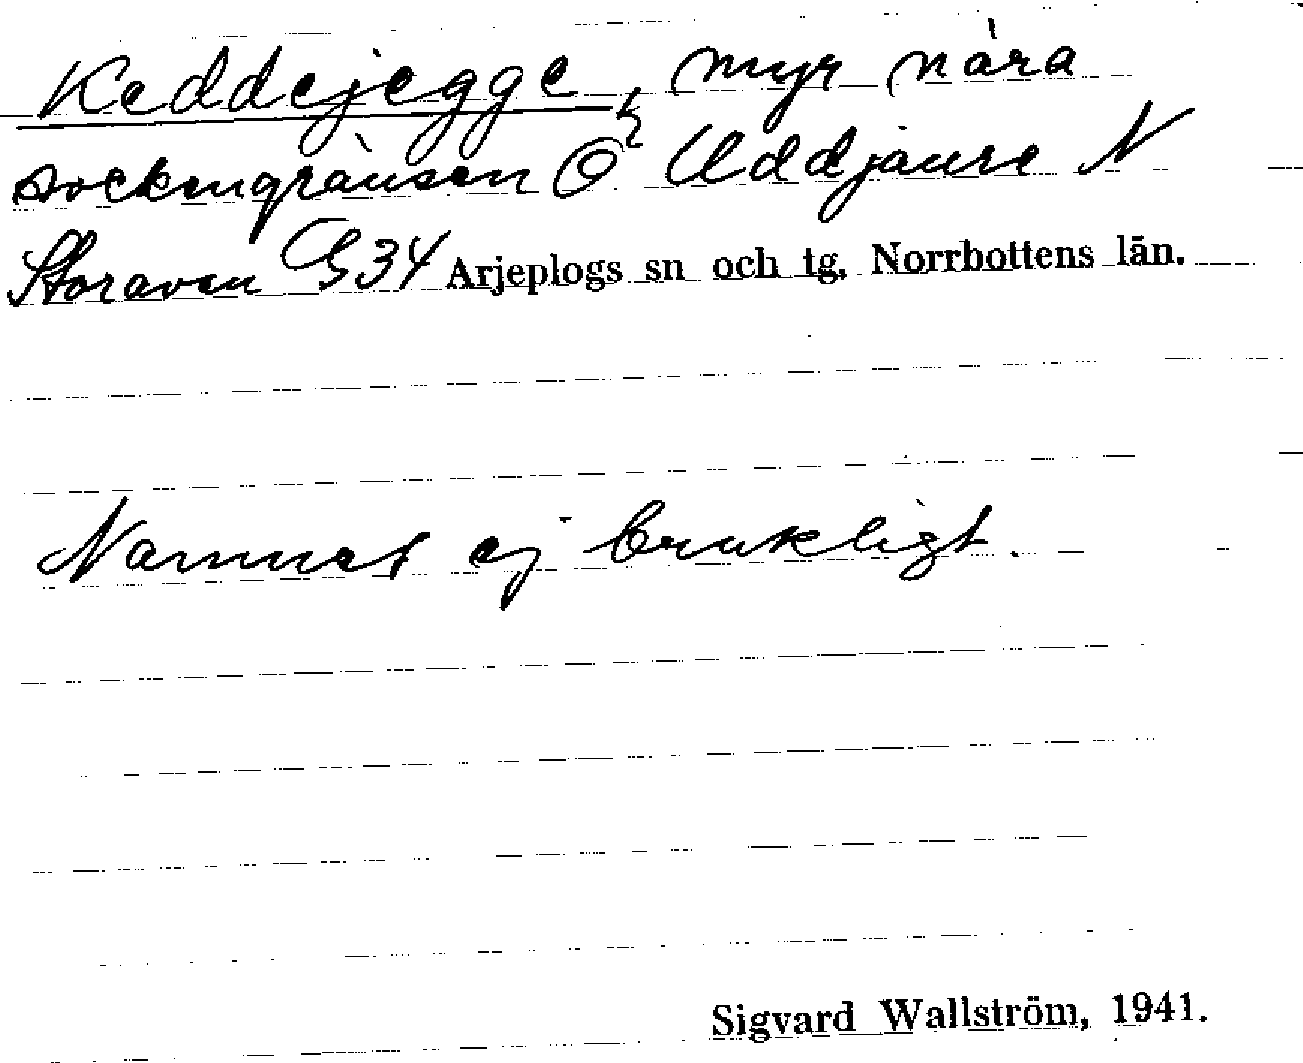 Keddejegge, myr nära
sockengränsen O Uddjaure N
Storavan G34 Arjeplogs sn och tg, Norrbottens län.
Namnet ej brukligt.
Sigvard Wallström, 1941.